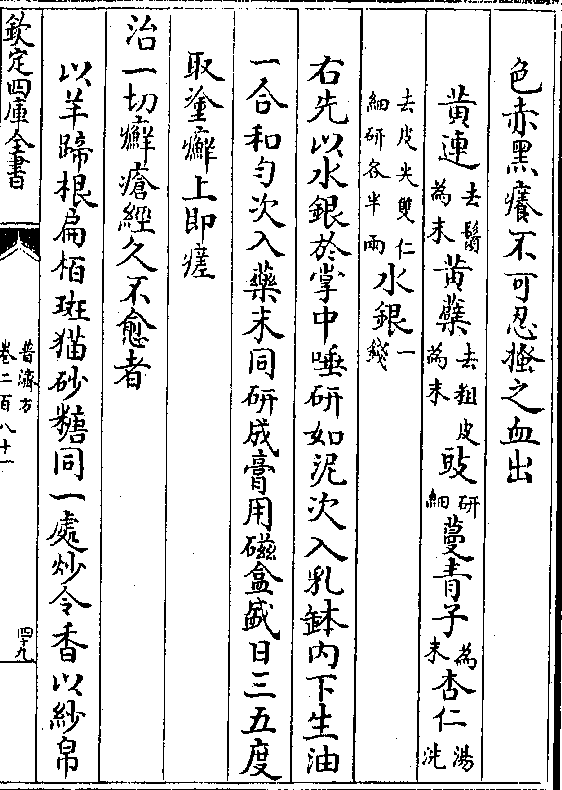 色赤黑癢不可忍搔之血出
黄連去鬚為末黄蘗去粗皮為末豉研細蔓青子為末杏仁湯洗
去皮尖雙仁細研各半兩水銀一錢
右先以水銀於掌中唾研如泥次入乳鉢内下生油
一合和匀次入藥末同研成膏用磁盒盛日三五度
取塗癬上即瘥
治一切癬瘡經久不愈者
以羊蹄根扁栢斑猫砂糖同一處炒令香以紗帛
欽定四庫全書
普濟方
卷二百八十一
四十九